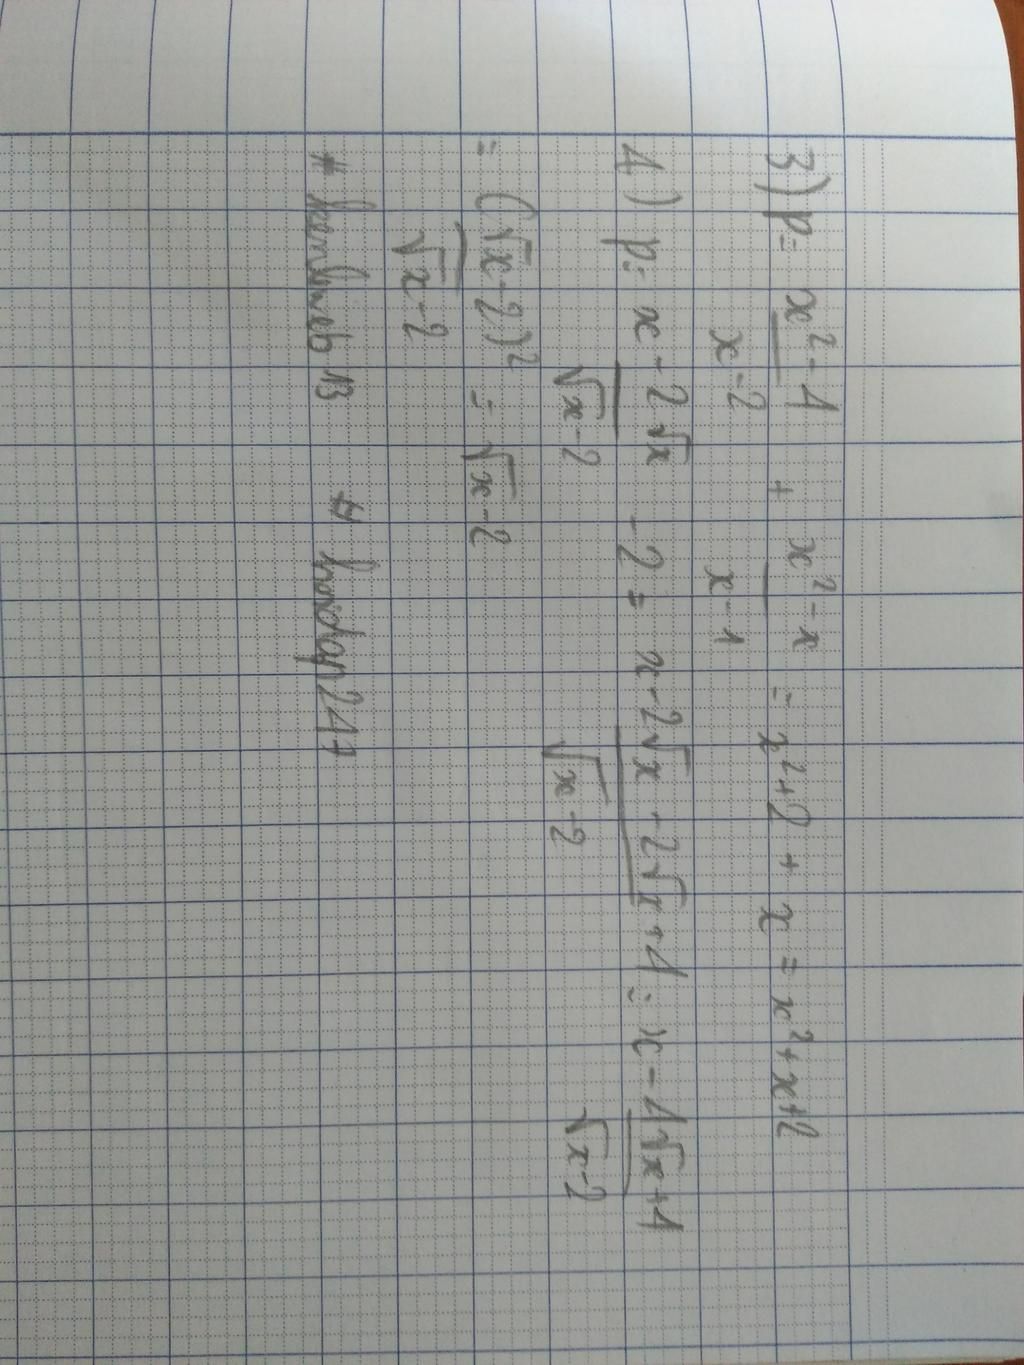 3) P = x² - 4 / x - 2 + x² - x / x - 1 = x² + 2 + x = x² + x + 2
4) P = x - 2√x / √x - 2 - 2 = x - 2√x - 2√x + 4 / √x - 2 = x - 4√x + 4 / √x - 2
= (√x - 2)² / √x - 2 = √x - 2